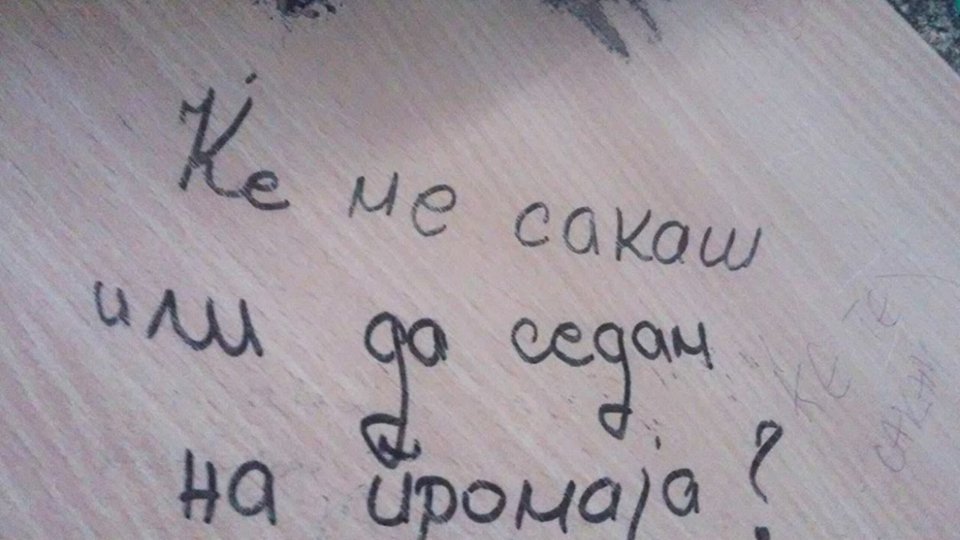 Ќе ме сакаш
или да седам
на промаја?
ЌЕ ТЕ
САКАМ